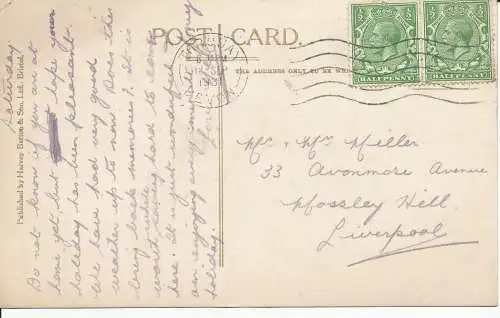 POST CARD.
THE ADDRESS ONLY TO BE
HALFPENNY
HALFPENNY
Published by Harvey Barton & Son, Ltd., Bristol.
Saturday
Do not know if you are at
home yet, but hope your
holiday has been pleasant.
We have had very good
weather up to now. Does this
bring back memories? It is
worth while having to come
here. It is just wonderful
am enjoying every minute of my
holiday.
Mr & Mrs Miller
33 Avonmore Avenue
Mossley Hill
Liverpool